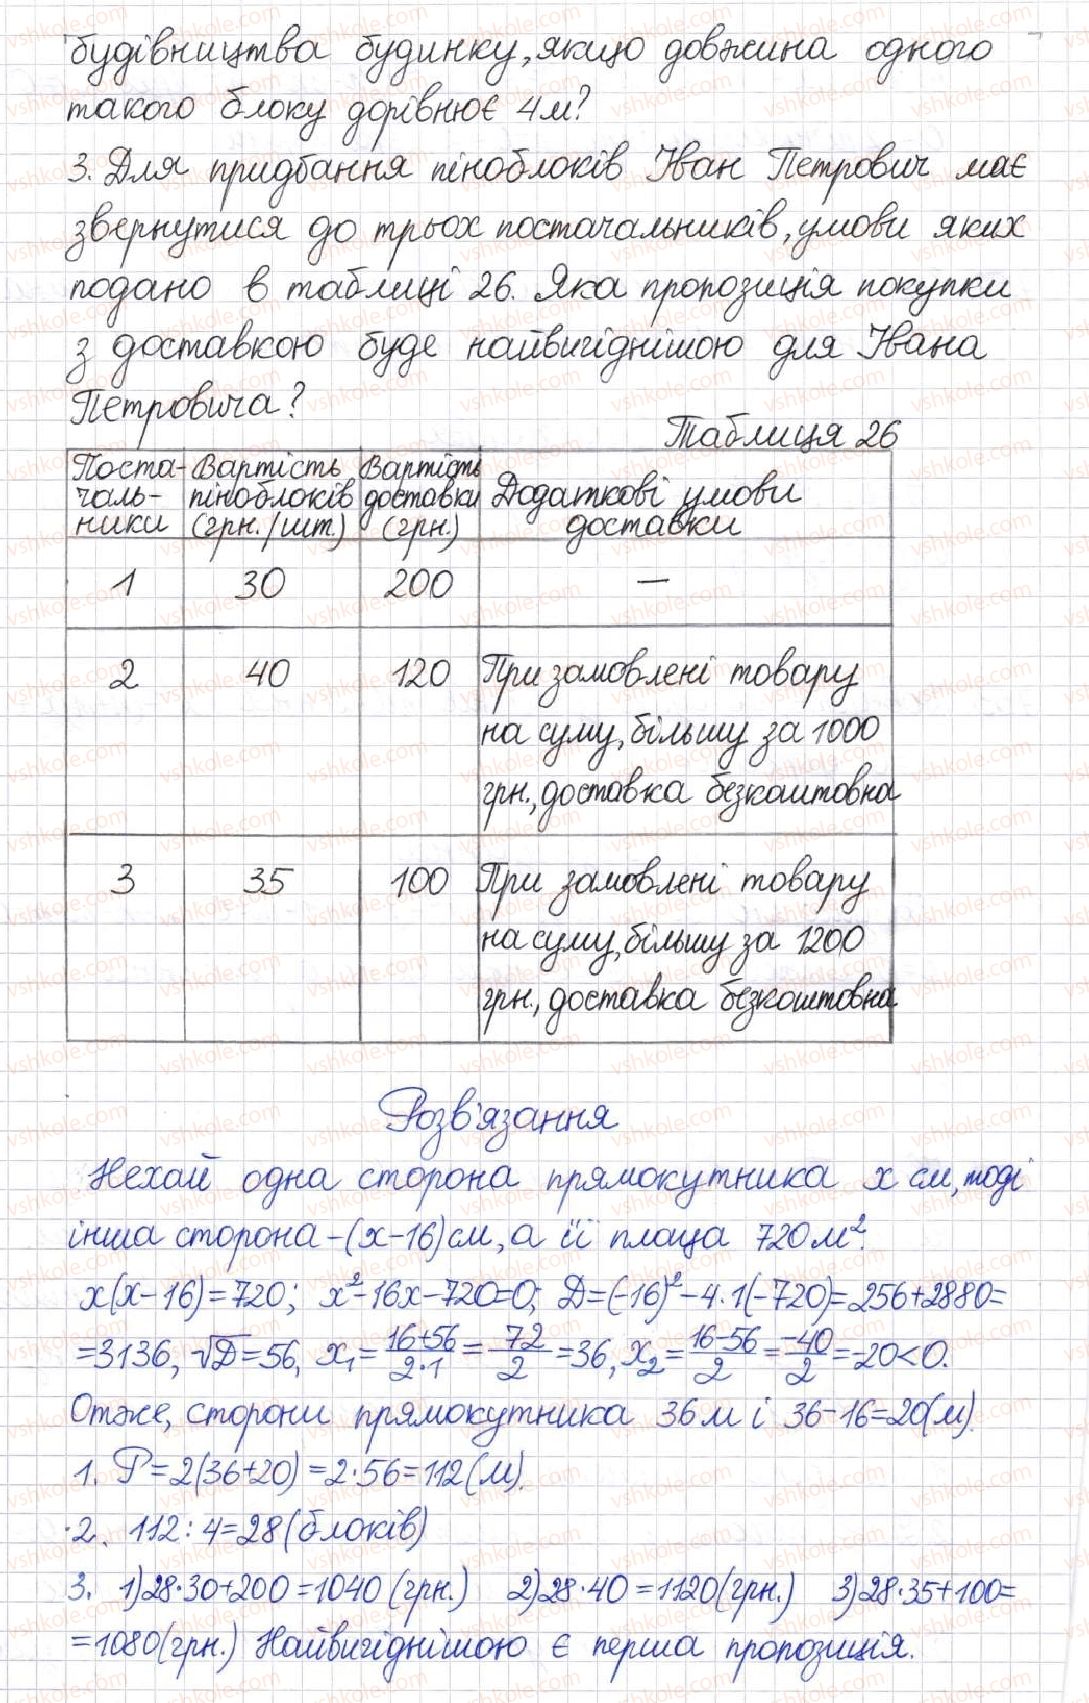 будівництва будинку, якщо довжина одного
такого блоку дорівнює 4м?
3. Для придбання піноблоків Іван Петрович має
звернутися до трьох постачальників, умови яких
подано в таблиці 26. Яка пропозиція покупки
з доставкою буде найвигіднішою для Івана
Петровича?
Таблиця 26
Поста-
чаль-
ники
Вартість
піноблоків
(грн./шт.)
Вартість
доставки
(грн.)
Додаткові умови
доставки
1 30 200 —
2 40 120 При замовлені товару
на суму, більшу за 1000
грн., доставка безкоштовна
3 35 100 При замовлені товару
на суму, більшу за 1200
грн., доставка безкоштовна
Розв'язання
Нехай одна сторона прямокутника x см, тоді
інша сторона - (x-16) см, а її площа 720 м².
x(x-16)=720; x²-16x-720=0; D=(-16)²-4·1(-720)=256+2880=
=3136, √D=56, x₁=(16+56)/(2·1)=72/2=36, x₂=(16-56)/2=-40/2=-20<0.
Отже, сторони прямокутника 36 м і 36-16=20(м).
1. P=2(36+20)=2·56=112(м).
2. 112:4=28(блоків)
3. 1)28·30+200=1040(грн.) 2)28·40=1120(грн.) 3)28·35+100=
=1080(грн.) Найвигіднішою є перша пропозиція.